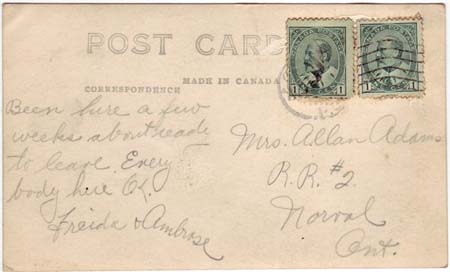 POST CARD
MADE IN CANADA
CORRESPONDENCE
CANADA POSTAGE
1 1
CANADA POSTAGE
1 1
Been here a few
weeks about ready
to leave. Every
body here OK.
Freida & Ambrose
Mrs. Allan Adams
R.R. #2.
Norval
Ont.